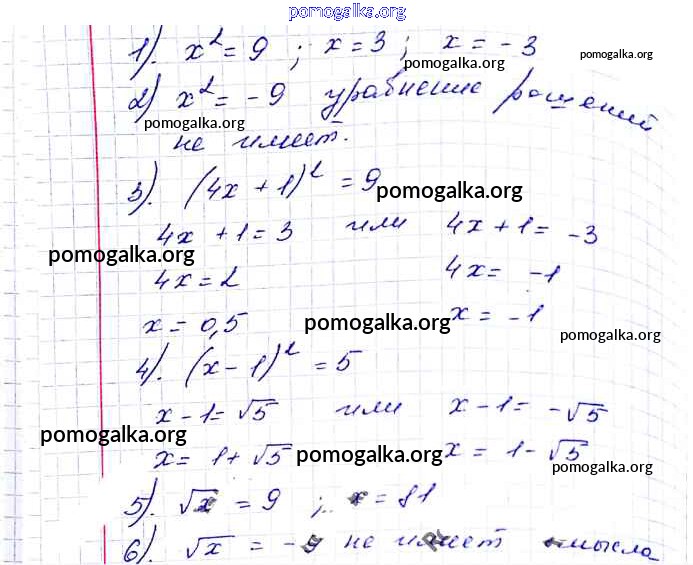 pomogalka.org
1). x² = 9 ; x = 3 ; x = - 3 pomogalka.org
pomogalka.org
2) x² = - 9 уравнение решений
pomogalka.org
не имеет.
3). (4x + 1)² = 9 pomogalka.org
4x + 1 = 3 или 4x + 1 = - 3
pomogalka.org
4x = 2 4x = - 1
x = 0,5 pomogalka.org x = - 1 pomogalka.org
4). (x - 1)² = 5
x - 1 = √5 или x - 1 = - √5
pomogalka.org
x = 1 + √5 pomogalka.org x = 1 - √5
pomogalka.org
5). √x = 9 ; x = 81
6). √x = - 9 не имеет смысла